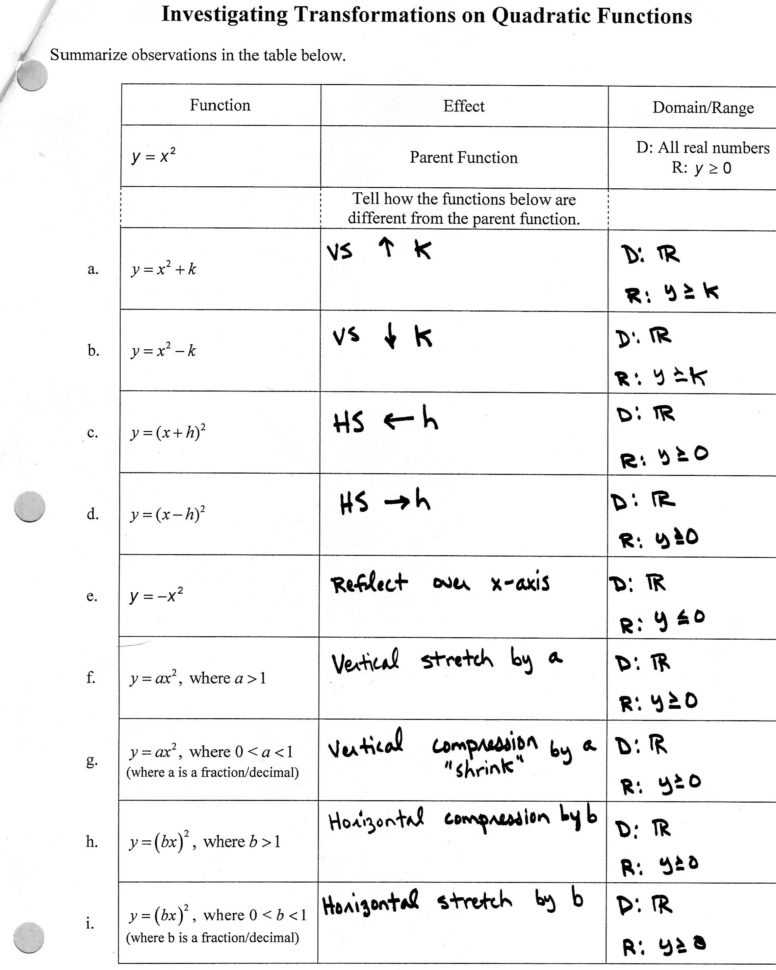 Investigating Transformations on Quadratic Functions
Summarize observations in the table below.
Function Effect Domain/Range
y = x² Parent Function D: All real numbers
R: y ≥ 0
Tell how the functions below are
different from the parent function.
a. y = x² + k VS ↑ k D: ℝ
R: y ≥ k
b. y = x² − k VS ↓ k D: ℝ
R: y ≥ k
c. y = (x + h)² HS ← h D: ℝ
R: y ≥ 0
d. y = (x − h)² HS → h D: ℝ
R: y ≥ 0
e. y = −x² Reflect over x-axis D: ℝ
R: y ≤ 0
f. y = ax², where a > 1 Vertical stretch by a D: ℝ
R: y ≥ 0
g. y = ax², where 0 < a < 1 Vertical compression by a D: ℝ
(where a is a fraction/decimal) "shrink" R: y ≥ 0
h. y = (bx)², where b > 1 Horizontal compression by b D: ℝ
R: y ≥ 0
i. y = (bx)², where 0 < b < 1 Horizontal stretch by b D: ℝ
(where b is a fraction/decimal) R: y ≥ 0